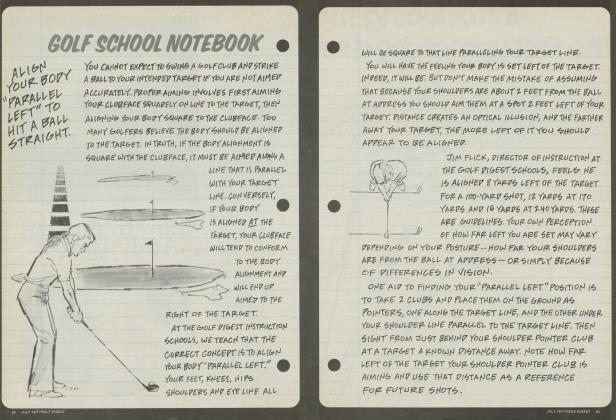 GOLF SCHOOL NOTEBOOK
ALIGN
YOUR BODY
"PARALLEL
LEFT" TO
HIT A BALL
STRAIGHT.
YOU CANNOT EXPECT TO SWING A GOLF CLUB AND STRIKE
A BALL TO YOUR INTENDED TARGET IF YOU ARE NOT AIMED
ACCURATELY. PROPER AIMING INVOLVES FIRST AIMING
YOUR CLUBFACE SQUARELY ON LINE TO THE TARGET, THEN
ALIGNING YOUR BODY SQUARE TO THE CLUBFACE. TOO
MANY GOLFERS BELIEVE THE BODY SHOULD BE ALIGNED
TO THE TARGET. IN TRUTH, IF THE BODY ALIGNMENT IS
SQUARE WITH THE CLUBFACE, IT MUST BE AIMED ALONG A
LINE THAT IS PARALLEL
WITH YOUR TARGET
LINE. CONVERSELY,
IF YOUR BODY
IS ALIGNED AT THE
TARGET, YOUR CLUBFACE
WILL TEND TO CONFORM
TO THE BODY
ALIGNMENT AND
WILL END UP
AIMED TO THE
RIGHT OF THE TARGET.
AT THE GOLF DIGEST INSTRUCTION
SCHOOLS, WE TEACH THAT THE
CORRECT CONCEPT IS TO ALIGN
YOUR BODY "PARALLEL LEFT."
YOUR FEET, KNEES, HIPS
SHOULDERS AND EYE LINE ALL
JULY 1977/GOLF DIGEST
WILL BE SQUARE TO THAT LINE PARALLELING YOUR TARGET LINE.
YOU WILL HAVE THE FEELING YOUR BODY IS SET LEFT OF THE TARGET.
INDEED, IT WILL BE. BUT DON'T MAKE THE MISTAKE OF ASSUMING
THAT BECAUSE YOUR SHOULDERS ARE ABOUT 2 FEET FROM THE BALL
AT ADDRESS YOU SHOULD AIM THEM AT A SPOT 2 FEET LEFT OF YOUR
TARGET. DISTANCE CREATES AN OPTICAL ILLUSION, AND THE FARTHER
AWAY YOUR TARGET, THE MORE LEFT OF IT YOU SHOULD
APPEAR TO BE ALIGNED.
JIM FLICK, DIRECTOR OF INSTRUCTION AT
THE GOLF DIGEST SCHOOLS, FEELS HE
IS ALIGNED 8 YARDS LEFT OF THE TARGET
FOR A 100-YARD SHOT, 12 YARDS AT 170
YARDS AND 16 YARDS AT 240 YARDS. THESE
ARE GUIDELINES. YOUR OWN PERCEPTION
OF HOW FAR LEFT YOU ARE SET MAY VARY
DEPENDING ON YOUR POSTURE -- HOW FAR YOUR SHOULDERS
ARE FROM THE BALL AT ADDRESS -- OR SIMPLY BECAUSE
OF DIFFERENCES IN VISION.
ONE AID TO FINDING YOUR "PARALLEL LEFT" POSITION IS
TO TAKE 2 CLUBS AND PLACE THEM ON THE GROUND AS
POINTERS, ONE ALONG THE TARGET LINE, AND THE OTHER UNDER
YOUR SHOULDER LINE PARALLEL TO THE TARGET LINE. THEN
SIGHT FROM JUST BEHIND YOUR SHOULDER POINTER CLUB
AT A TARGET A KNOWN DISTANCE AWAY. NOTE HOW FAR
LEFT OF THE TARGET YOUR SHOULDER POINTER CLUB IS
AIMING AND USE THAT DISTANCE AS A REFERENCE
FOR FUTURE SHOTS.
JULY 1977/GOLF DIGEST